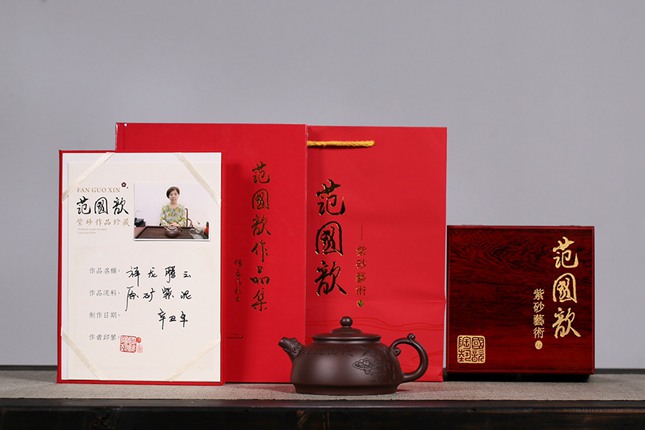 FAN GUO XIN
范國歆
紫砂作品珍藏
作品名稱:祥龙腾云
作品泥料:原矿紫泥
制作日期:辛丑年
作者印鑒:
范國歆作品集
范國歆
紫砂藝術
范國歆
紫砂藝術